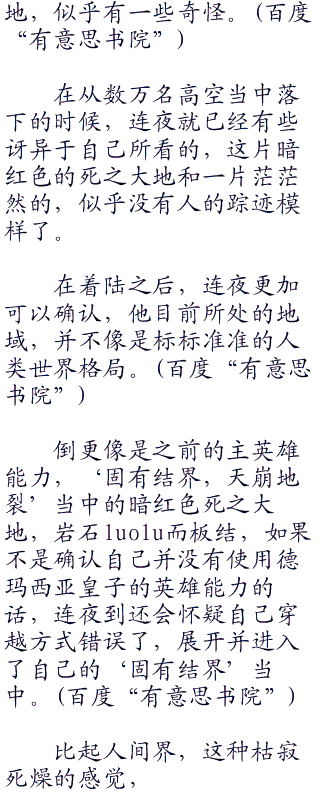 地，似乎有一些奇怪。(百度
“有意思书院”)
在从数万名高空当中落
下的时候，连夜就已经有些
讶异于自己所看的，这片暗
红色的死之大地和一片茫茫
然的，似乎没有人的踪迹模
样了。
在着陆之后，连夜更加
可以确认，他目前所处的地
域，并不像是标标准准的人
类世界格局。(百度“有意思
书院”)
倒更像是之前的主英雄
能力，‘固有结界，天崩地
裂’当中的暗红色死之大
地，岩石luolu而板结，如果
不是确认自己并没有使用德
玛西亚皇子的英雄能力的
话，连夜到还会怀疑自己穿
越方式错误了，展开并进入
了自己的‘固有结界’当
中。(百度“有意思书院”)
比起人间界，这种枯寂
死燥的感觉，